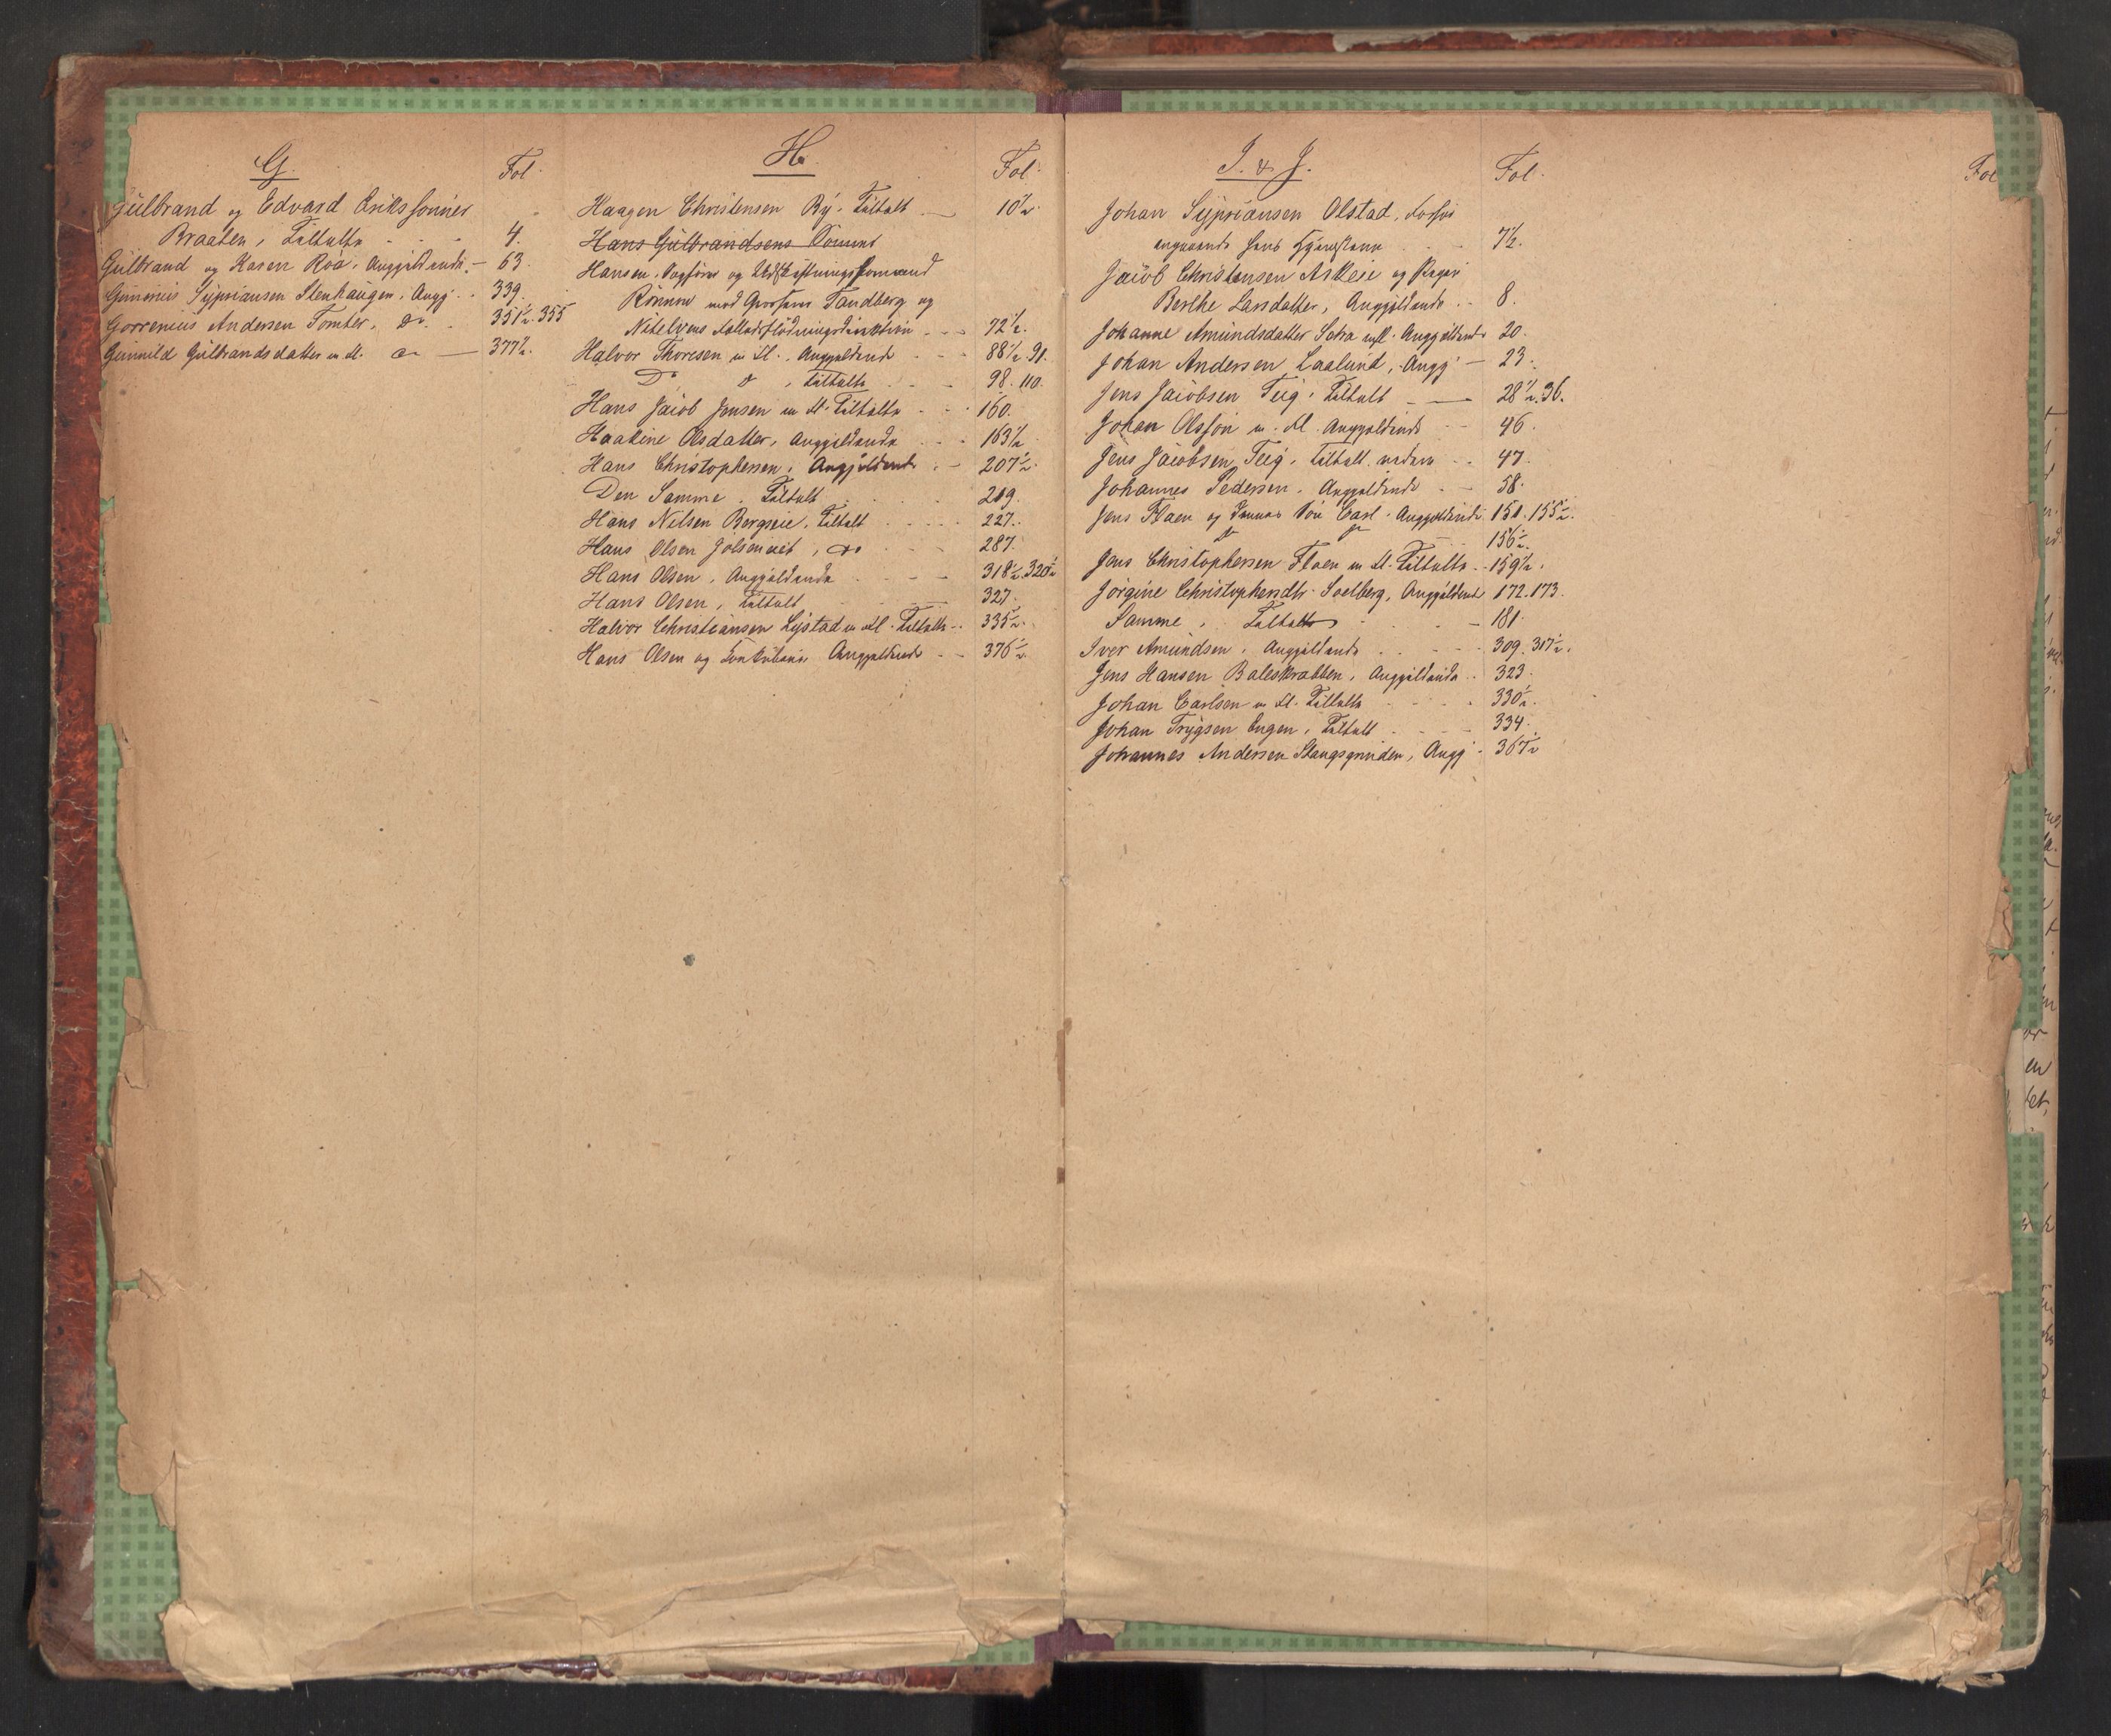 G. Fol.
Gulbrand og Edvard Erikssønner
Braaten, Tiltalte - - - 4.
Gulbrand og Karen Roa, Anggjældende - 63.
Gunerius Sypriansen Stenhaugen, Angg. - 339.
Gorrenius Andersen Tomter, do. - 351½. 355
Gunnild Gulbrandsdatter m fl. do - 377½.
H. Fol.
Haagen Christensen Ry, Tiltalt - 10½.
Hans Gulbrandsens
Hansen, Sagfører og Udskiftningsformand
Rønnow mod Grosserer Tandberg og
Nitelvens Fællesflødningsdirektion - - - 72½.
Halvor Thoresen m fl., Anggjældende - - - 88½. 91.
Do do, Tiltalte - - - 98. 110.
Hans Jacob Jensen m fl. Tiltalte - - - 160.
Haakine Olsdatter, Anggjældende - - - 163½
Hans Christophersen, Anggjeldende - - 207½.
Den Samme, Tiltalt - - - 219.
Hans Nilsen Bergseie, Tiltalt - - - - 227.
Hans Olsen, do - - - 287.
Hans Olsen, Anggjældende - - - - 318½. 320½
Hans Olsen, Tiltalt - - - 327.
Halvor Christiansen Lystad m fl. Tiltalte - - 335½.
Hans Olsen og Anggjældende - - 376½.
I. & J. Fol.
Johan Sypriansen Olstad, Forhør
angaaende hans - - - 7½.
Jacob Christensen Askeie og
Berthe Larsdatter, Anggjældende - - 8.
Johanne Amundsdatter Sætra mfl. Anggjældende 20.
Johan Andersen Laalund, Angg. - 23.
Jens Jacobsen Teig, Tiltalt - - 28½. 36.
Johan Olsson m. fl. Anggjældende - - 46.
Jens Jacobsen Teig, Tiltalt - - 47.
Johannes Pedersen, Anggjældende - - 58.
Jens Flaen og Søn Carl, Anggjældende 151. 155½.
do do 156½.
Jens Christophersen Flaen m fl. Tiltalte - - 159½.
Jørgine Christophersdtr. Solberg, Anggjældende 172. 173.
Samme, Tiltalt - - - 181.
Iver Amundsen, Anggjældende - - - - 309. 317½.
Jens Hansen Baleskrabben, Anggjældende - - 323.
Johan Carlsen m fl. Tiltalte - - - 330½.
Johan Trygsen Engen, Tiltalt - - - 334.
Johannes Andersen Stangsgruden, Angg. - 367½
Fol